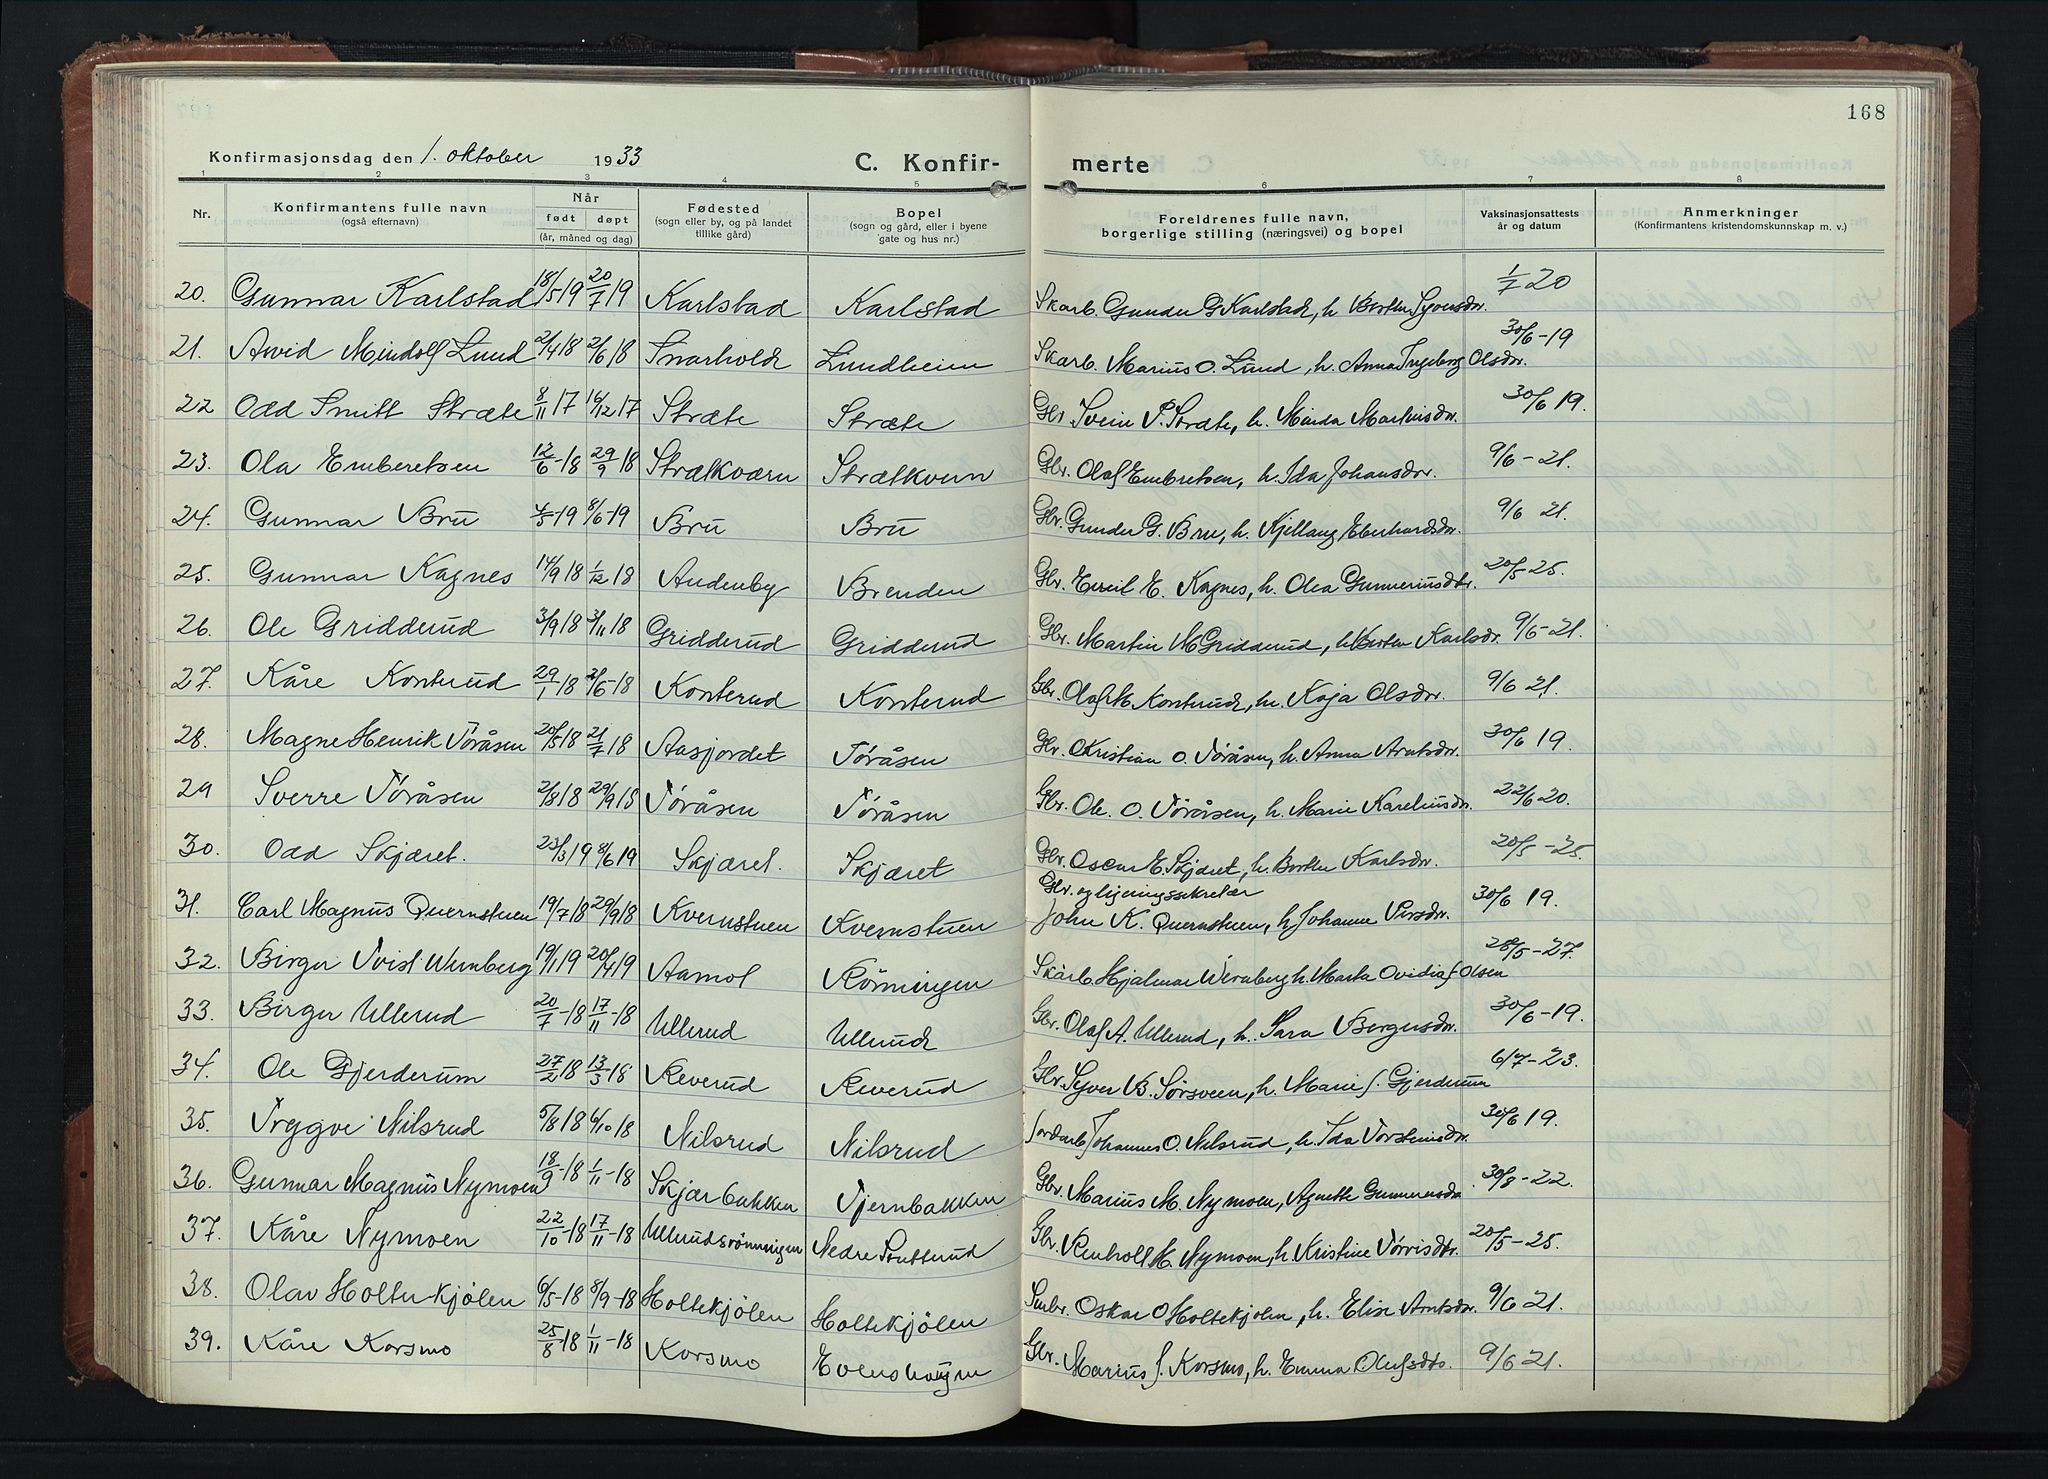 168
Konfirmasjonsdag den 1. oktober 1933 C. Konfir- merte
1 2 3 4 5 6 7 8
Nr. Konfirmantens fulle navn (også efternavn) Når født døpt (år, måned og dag) Fødested (sogn eller by, og på landet tillike gård) Bopel (sogn og gård, eller i byene gate og hus nr.) Foreldrenes fulle navn, borgerlige stilling (næringsvei) og bopel Vaksinasjonsattests år og datum Anmerkninger (Konfirmantens kristendomskunnskap m. v.)
20. Gunnar Karlstad 18/5 19 20/7 19 Karlstad Karlstad Skarb. Gunder G Karlstad, h. Berthe Syversdr. 1/7 20
21. Arvid Mindolf Lund 2/4 18 2/6 18 Snarhold Lundheim Skarb. Marius O. Lund, h. Anna Ingeborg Olsdr. 30/6-19
22 Odd Smitt Stræte 8/11 17 16/12 17 Stræte Stræte Gbr Svein P. Stræte, h. Minda Martinsdr. 30/6 19.
23. Ola Emberetsen 12/6-18 29/9 18 Strætkværn Strætkvern Gbr. Olaf Embretsen, h. Ida Johansdr. 9/6-21.
24. Gunnar Bru 4/5-19 8/6-19 Bru Bru Gbr. Gunder G. Bru, h. Kjellaug Eberhardsdr. 9/6 21.
25. Gunnar Kagnes 14/9 18 1/12 18 Audenby Brenden Gbr. Emil E. Kagnes, h. Olea Gunneriusdtr. 20/5-25.
26. Ole Gridderud 3/9 18 3/11 18 Gridderud Gridderud Gbr. Martin M Gridderud, h. Berthe Karlsdr. 9/6-21.
27. Kåre Konterud 29/1 18 2/6-18 Konterud Konterud Gbr. Olaf M. Konterud, h. Kaja Olsdr. 9/6 21.
28. Magne Henrik Töråsen 20/5 18 21/7 18 Aasjordet Töråsen Gbr. Kristian O. Töråsen, h. Anna Arntsdr. 30/6 19.
29 Sverre Töråsen 2/8 18 29/9 18 Töråsen Töråsen Gbr. Ole O. Töråsen, h. Marie Kareliusdr. 22/6 20.
30. Odd Skjæret. 23/3 19 8/6 19 Skjæret. Skjæret Gbr. Oscar E. Skjæret, h. Berthe Karlsdr. 20/5-25.
31. Carl Magnus Quernstuen 19/7 18 29/9 18 Kvernstuen Kvernstuen Gbr. og ligningssekretær
John K. Quernstuen, h. Johanne Persdr. 30/6 19.
32. Birger Tvist Wernberg 19/1 19 20/4 19 Aamot Rönningen Skarb. Hjalmar Wernberg h. Marta Ovidia J. Olsen 28/5-27.
33. Birger Ullerud 20/7-18 17/11-18 Ullerud Ullerud Gbr. Olaf A. Ullerud, h. Sara Bergersdr. 30/6-19.
34. Ole Gjerderum 27/2 18 13/3-18 Reverud Reverud Gbr. Syver B. Sørsveen, h. Marie J. Gjerderum 6/7-23.
35. Trygve Nilsrud 5/8 18 6/10 18 Nilsrud Nilsrud Jordarb. Johannes O. Nilsrud, h. Ida Torsteinsdr. 30/6 19.
36. Gunnar Magnus Nymoen 18/9-18 1/11-18 Skjærbakken Tjernbakken Gbr. Marius M. Nymoen, Agnethe Gunnerusdr. 30/8-22.
37. Kåre Nymoen 22/10-18 17/11-18 Ullerudsrönningen Nedre Gbr. Renholt M. Nymoen, h. Kristine 20/5-25.
38. Olav Holter-kjölen 6/5-18 8/9-18 Holtekjölen Holtekjölen Småbr. Oskar O Holtekjölen, h. Elise Arntsdr. 9/6 21.
39. Kåre Korsmo 25/8 18 1/11-18 Korsmo Gbr. Marius J. Korsmo, h. Emma Olufsdtr. 9/6 21.